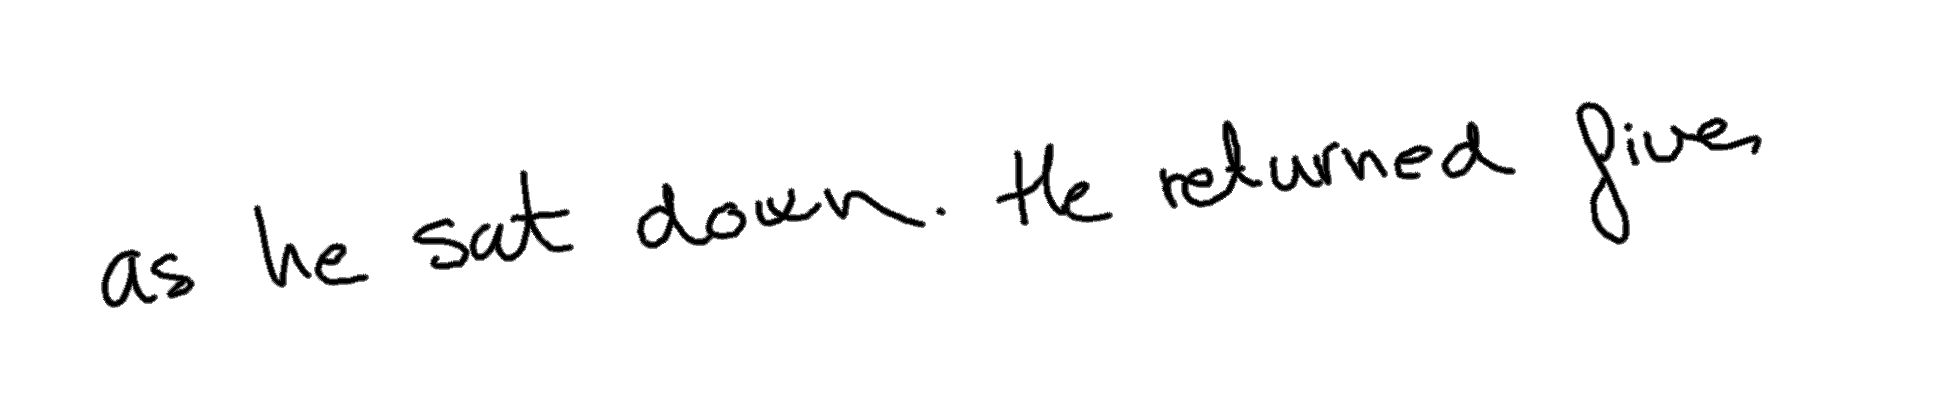 as he sat down. He returned five,